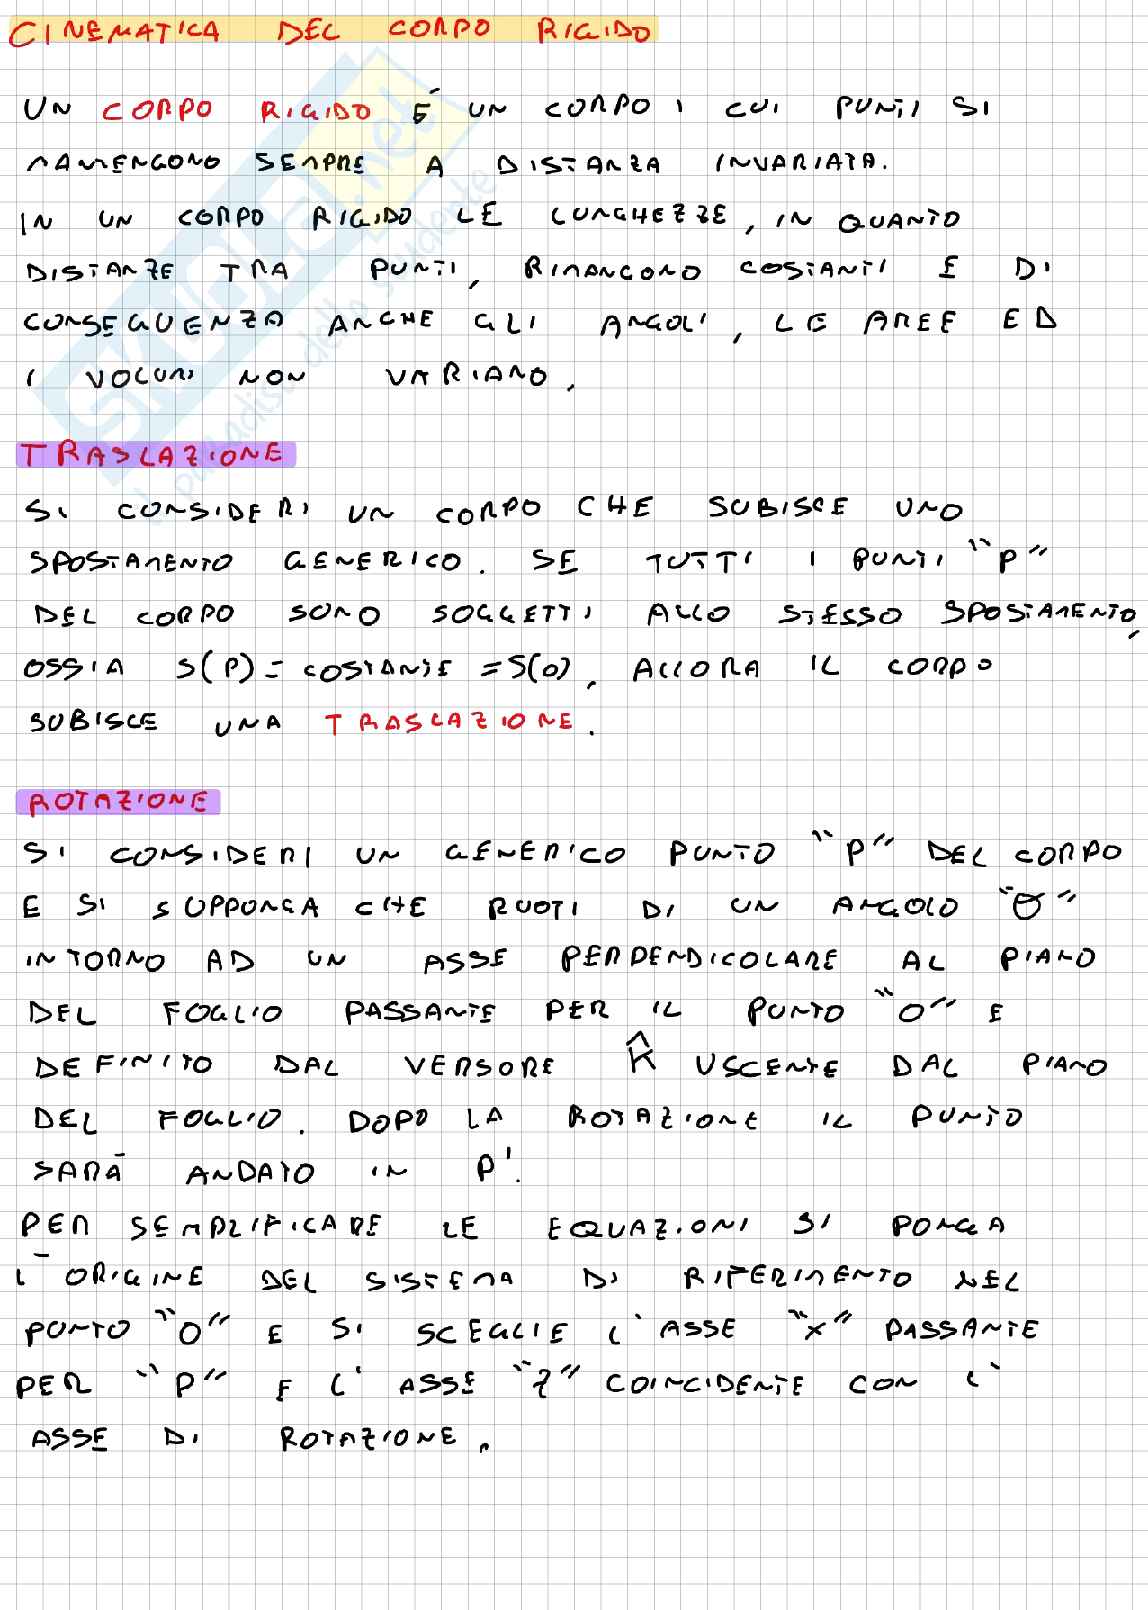 CINEMATICA DEL CORPO RIGIDO
UN CORPO RIGIDO È UN CORPO I CUI PUNTI SI
MANTENGONO SEMPRE A DISTANZA INVARIATA.
IN UN CORPO RIGIDO LE LUNGHEZZE, IN QUANTO
DISTANZE TRA PUNTI, RIMANGONO COSTANTI E DI
CONSEGUENZA ANCHE GLI ANGOLI, LE AREE ED
I VOLUMI NON VARIANO.
TRASLAZIONE
SI CONSIDERI UN CORPO CHE SUBISCE UNO
SPOSTAMENTO GENERICO. SE TUTTI I PUNTI "P"
DEL CORPO SONO SOGGETTI ALLO STESSO SPOSTAMENTO,
OSSIA S(P) = COSTANTE = S(O), ALLORA IL CORPO
SUBISCE UNA TRASLAZIONE.
ROTAZIONE
SI CONSIDERI UN GENERICO PUNTO "P" DEL CORPO
E SI SUPPONGA CHE RUOTI DI UN ANGOLO "Θ"
INTORNO AD UN ASSE PERPENDICOLARE AL PIANO
DEL FOGLIO PASSANTE PER IL PUNTO "O" E
DEFINITO DAL VERSORE K̂ USCENTE DAL PIANO
DEL FOGLIO. DOPO LA ROTAZIONE IL PUNTO
SARÀ ANDATO IN P'.
PER SEMPLIFICARE LE EQUAZIONI SI PONGA
L'ORIGINE DEL SISTEMA DI RIFERIMENTO NEL
PUNTO "O" E SI SCEGLIE L'ASSE "X" PASSANTE
PER "P" E L'ASSE "Z" COINCIDENTE CON L'
ASSE DI ROTAZIONE.
SKUOLA.net
il paradiso dello studente